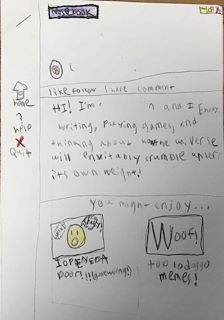 like follow share comment
home
?
help
X
Quit
Hi! I'm and I Enjoy
writing, playing games, and
thinking about how the universe
will envitably crumble under
its own weight!
you might enjoy...
Woof!
I OPENED A
Door!!!
top 10 doggo
memes!